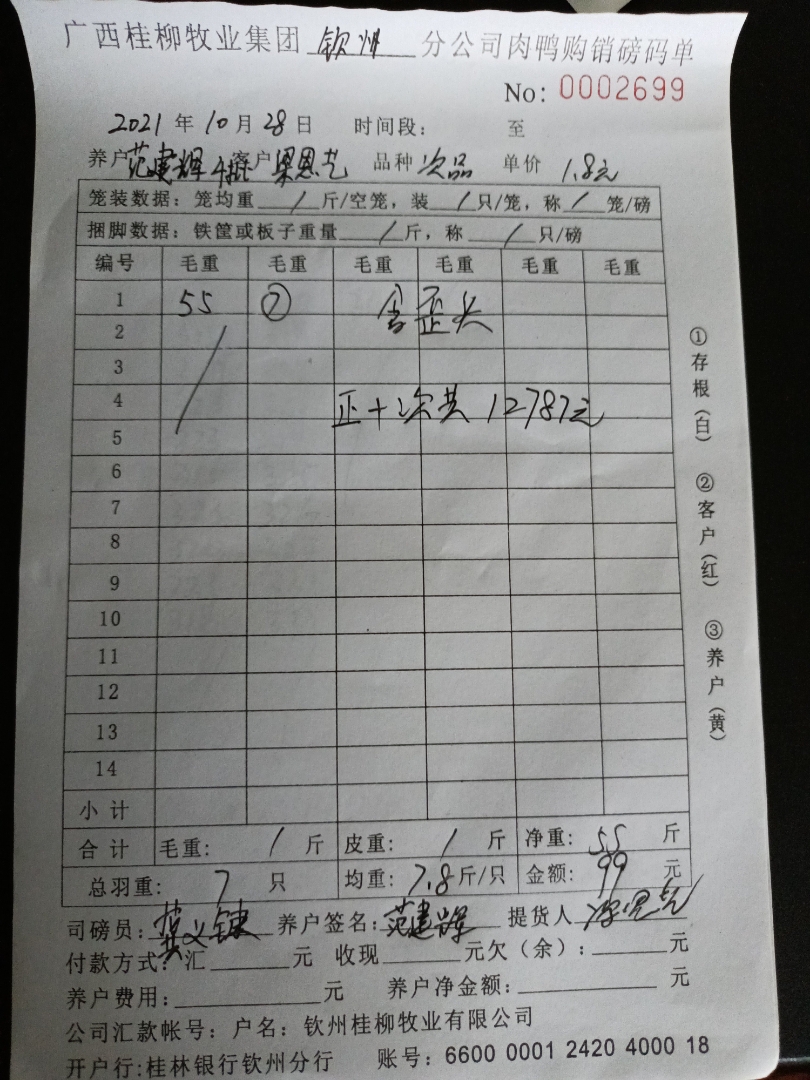 广西桂柳牧业集团 钦州 分公司肉鸭购销磅码单
No: 0002699
2021 年 10 月 28 日 时间段: 至
养户 范建辉 4批 客户 梁恩艺 品种 次品 单价 1.8元
笼装数据: 笼均重 / 斤/空笼, 装 / 只/笼, 称 / 笼/磅
捆脚数据: 铁筐或板子重量 / 斤, 称 / 只/磅
编号 毛重 毛重 毛重 毛重 毛重 毛重
1 55 ⑦ 含歪头
2
3
4 正+次共 12787元
5
6
7
8
9
10
11
12
13
14
小计
合计 毛重: / 斤 皮重: / 斤 净重: 55 斤
总羽重: 7 只 均重: 7.8 斤/只 金额: 99 元
司磅员: 养户签名: 范建辉 提货人
付款方式: 汇 元 收现 元欠(余): 元
养户费用: 元 养户净金额: 元
公司汇款帐号: 户名: 钦州桂柳牧业有限公司
开户行:桂林银行钦州分行 账号: 6600 0001 2420 4000 18
①存根(白) ②客户(红) ③养户(黄)